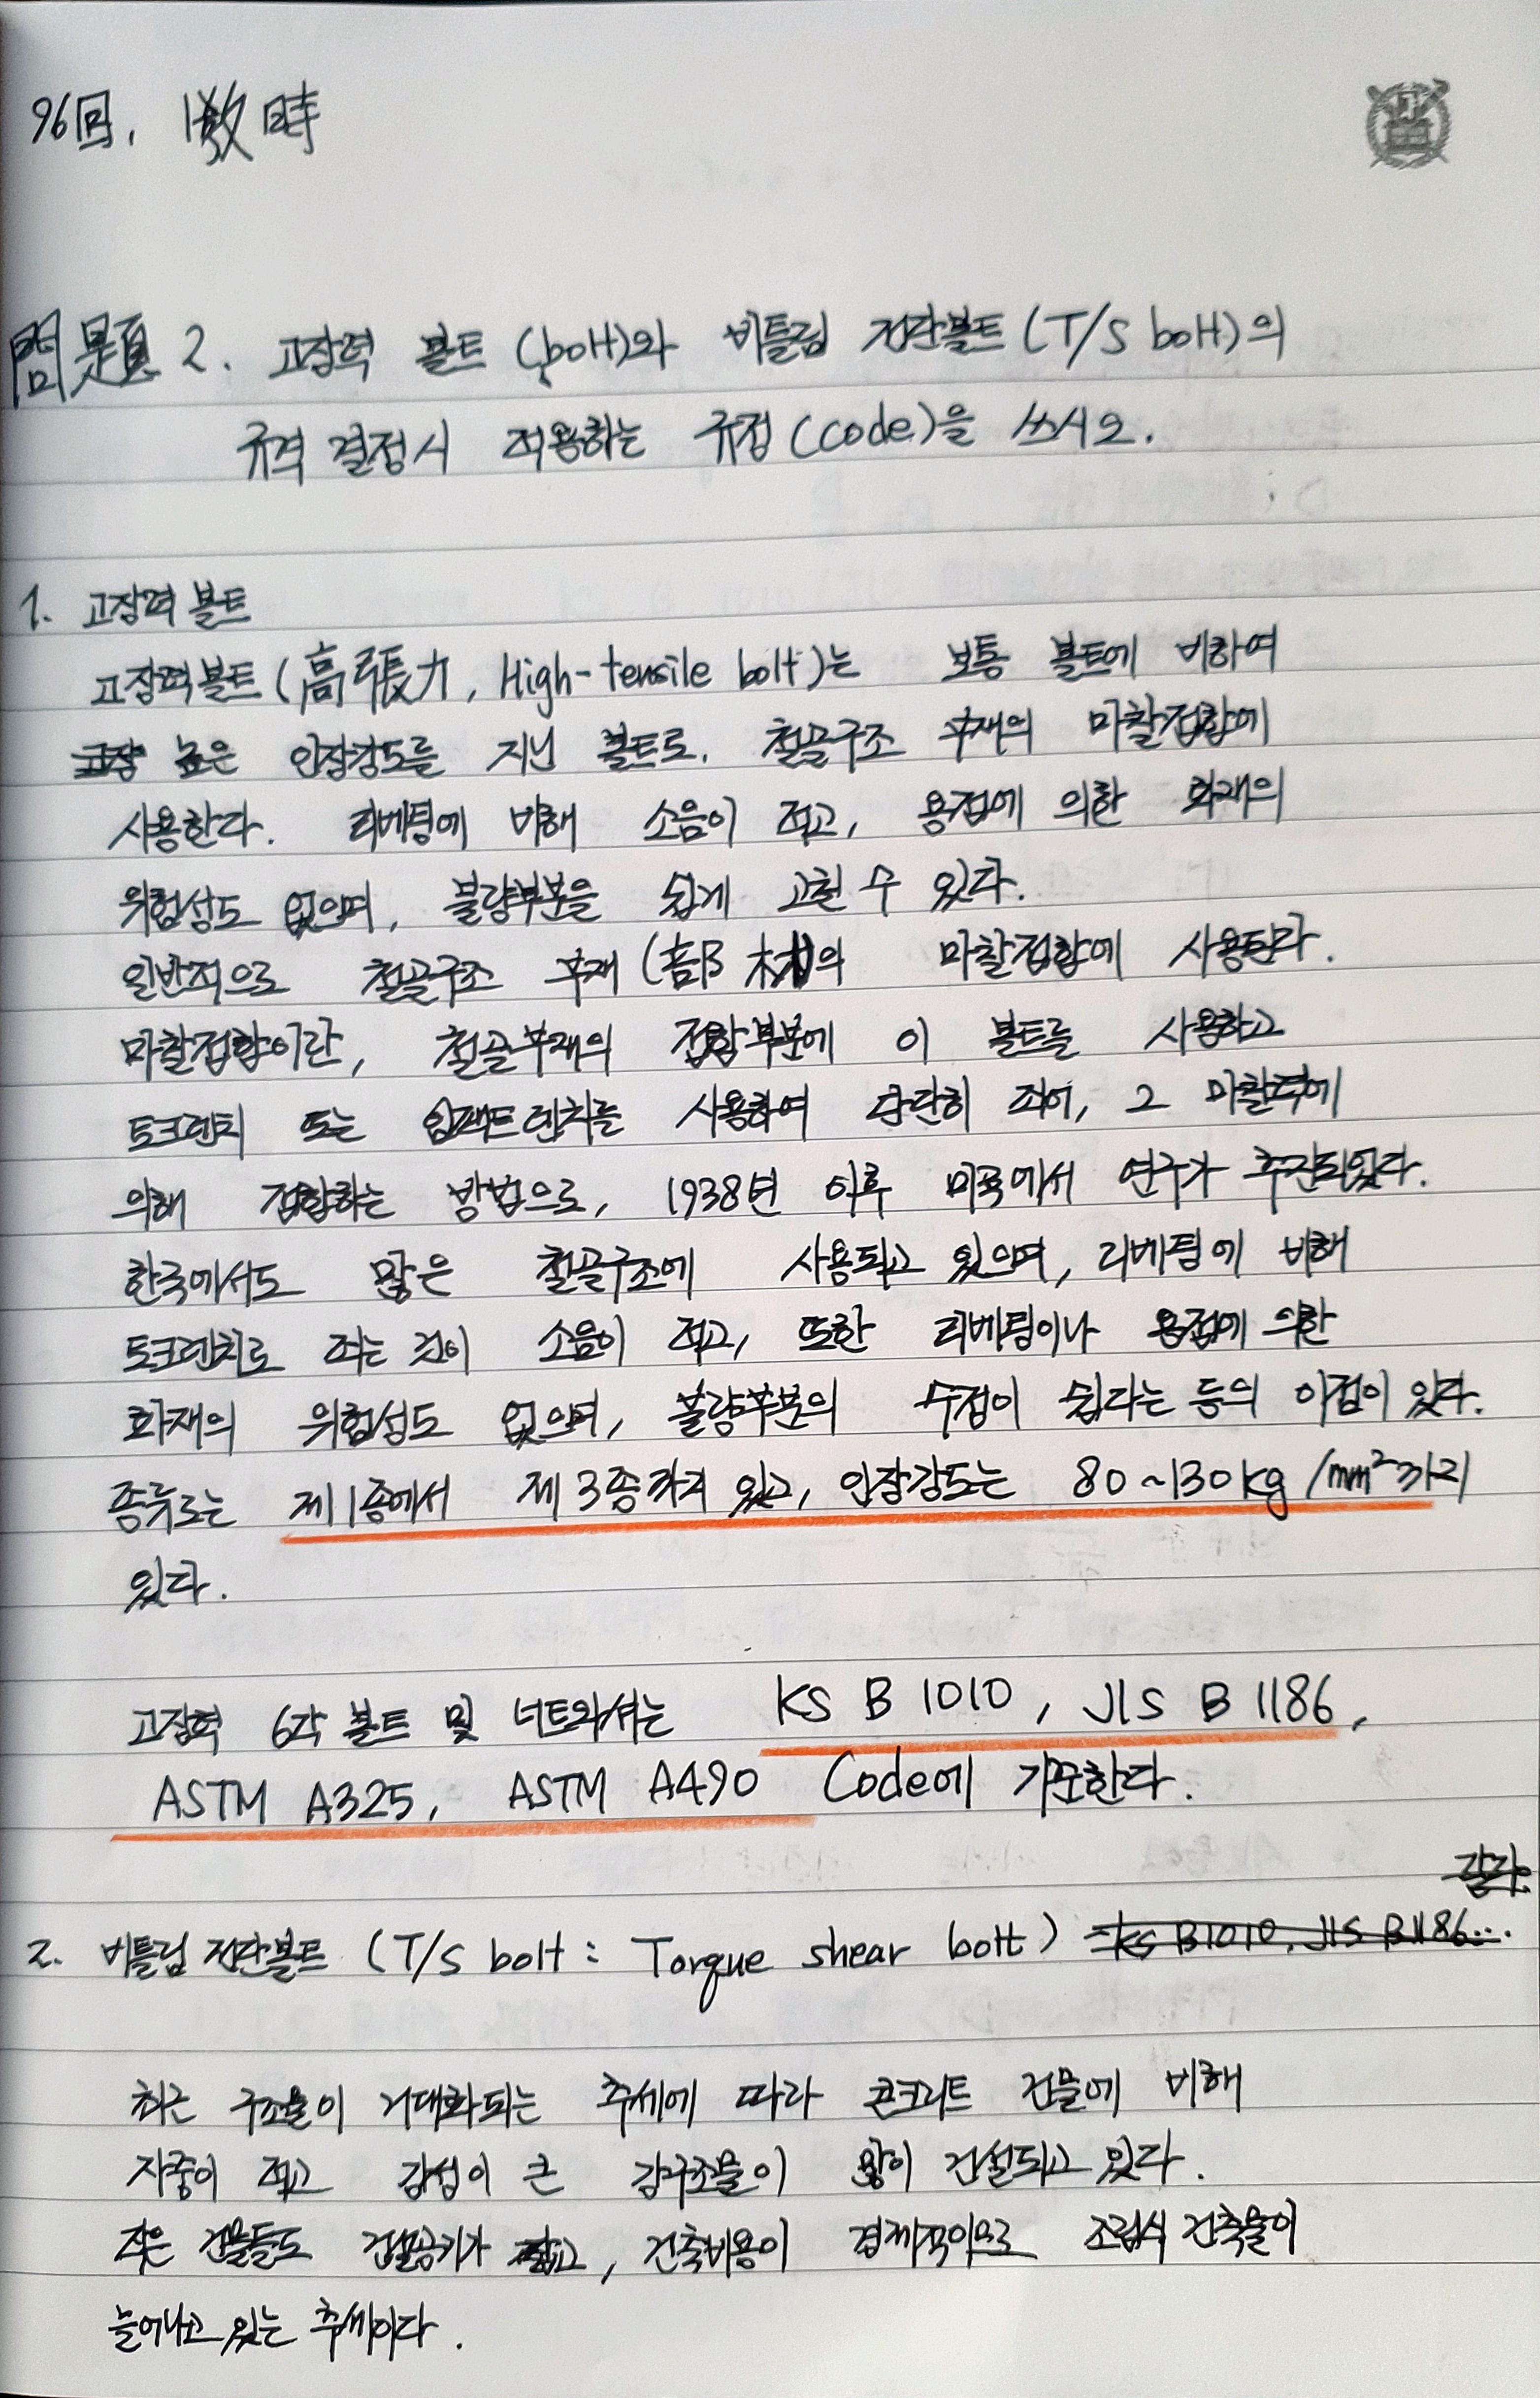 96回, 1敎時
問題 2. 고장력 볼트 (bolt)와 비틀림 전단볼트 (T/S bolt)의
규격 결정시 적용하는 규정 (code)을 쓰시오.
1. 고장력 볼트
고장력볼트 (高張力, High-tensile bolt)는 보통 볼트에 비하여
고장 높은 인장강도를 지닌 볼트로, 철골구조 부재의 마찰접합에
사용한다. 리베팅에 비해 소음이 적고, 용접에 의한 화재의
위험성도 없으며, 불량부분을 쉽게 고칠 수 있다.
일반적으로 철골구조 부재 (部材)의 마찰접합에 사용된다.
마찰접합이란, 철골부재의 접합부분에 이 볼트를 사용하고
토크렌치 또는 임팩트렌치를 사용하여 단단히 죄어, 그 마찰력에
의해 접합하는 방법으로, 1938년 이후 미국에서 연구가 추진되었다.
한국에서도 많은 철골구조에 사용되고 있으며, 리베팅에 비해
토크렌치로 죄는 것이 소음이 적고, 또한 리베팅이나 용접에 의한
화재의 위험성도 없으며, 불량부분의 수정이 쉽다는 등의 이점이 있다.
종류로는 제1종에서 제3종까지 있고, 인장강도는 80~130kg/mm²까지
있다.
고장력 6각 볼트 및 너트와셔는 KS B 1010, JIS B 1186,
ASTM A325, ASTM A490 Code에 기준한다.
같다.
2. 비틀림 전단볼트 (T/S bolt : Torque shear bolt) KS B1010, JIS B1186...
최근 구조물이 거대화되는 추세에 따라 콘크리트 건물에 비해
자중이 적고 강성이 큰 강구조물이 많이 건설되고 있다.
작은 건물들도 건설공기가 짧고, 건축비용이 경제적이으로 조립식 건축물이
늘어나고 있는 추세이다.